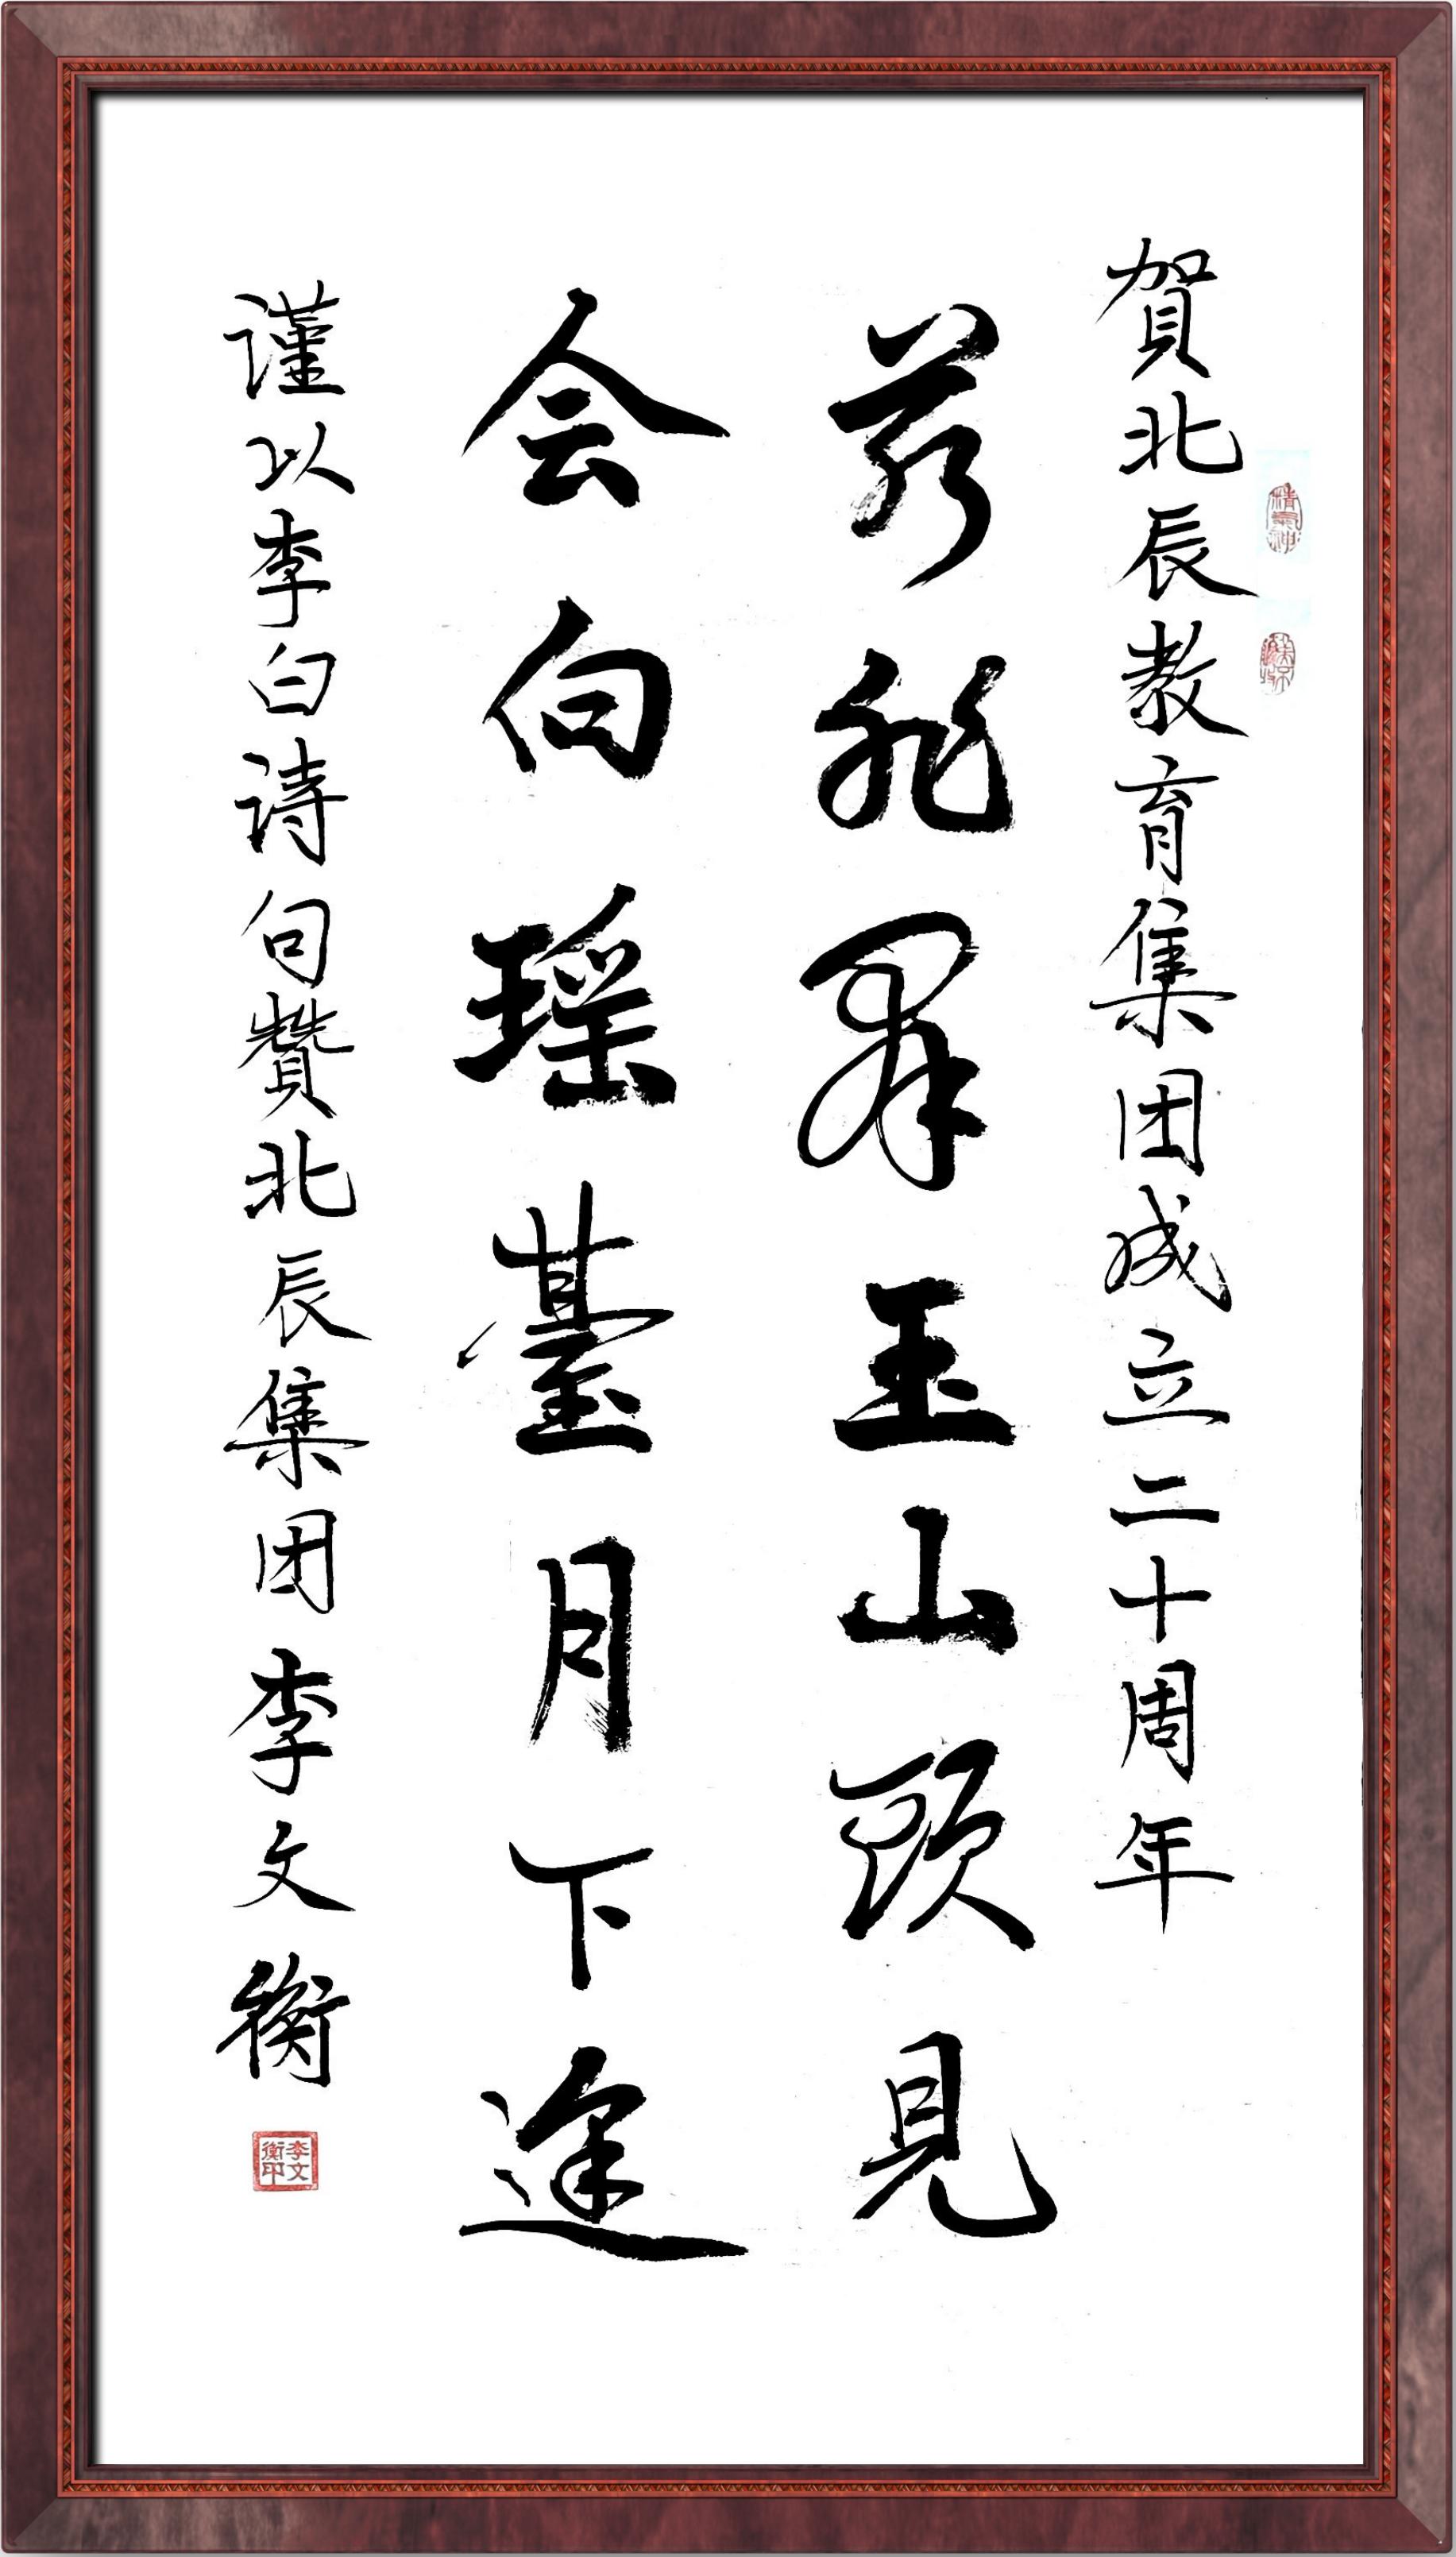 賀北辰教育集团成立二十周年
若非群玉山頭見
会向瑶臺月下逢
谨以李白诗句贊北辰集团 李文衡
精氣神
李文衡印